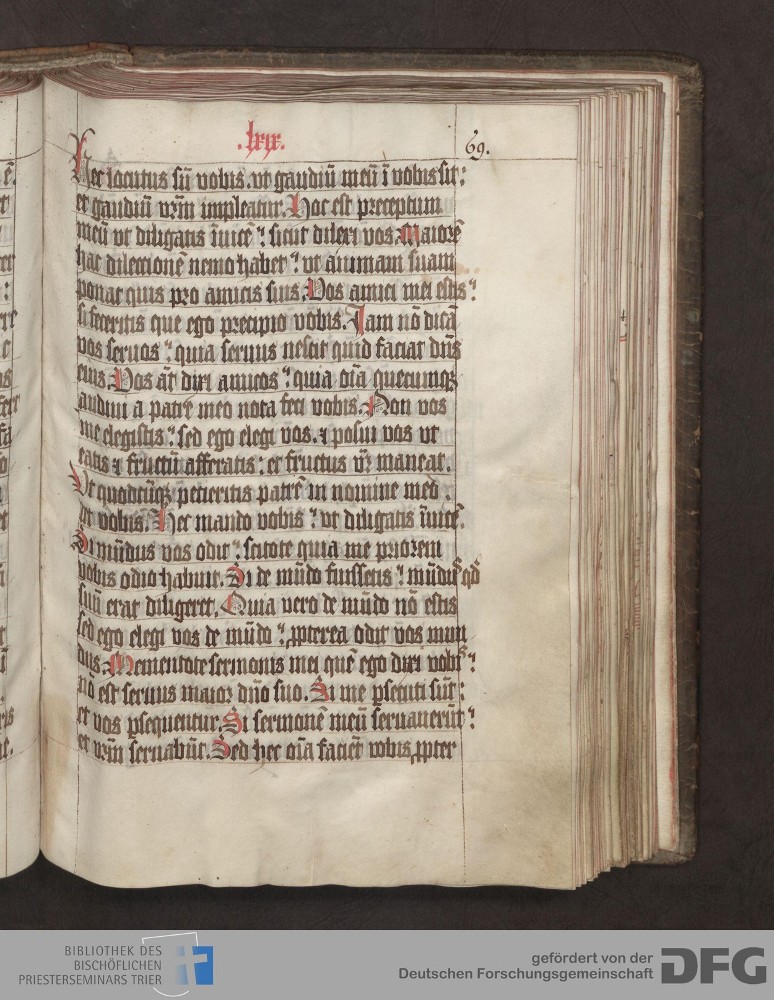 .lxix.
69.
Hec locutus sū vobis. vt gaudiū meū ī vobis sit:
et gaudiū vr̄m impleatur. Hoc est preceptum
meū vt diligatis īuicē: sicut dilexi vos. Maiorē
hac dilectionē nemo habet: vt animam suam
ponat quis pro amicis suis. Vos amici mei estis:
si feceritis que ego precipio vobis. Iam nō dicā
vos seruos: quia seruus nescit quid faciat dn̄s
eius. Vos āt dixi amicos: quia oīa quecumqꝫ
audiui a patre meo nota feci vobis. Non vos
me elegistis: sed ego elegi vos. ⁊ posui vos vt
eatis ⁊ fructū afferatis: et fructus vr̄ maneat.
Vt quodcūqꝫ petieritis patrē in nomine meo.
det vobis. Hec mando vobis: vt diligatis īuicē.
Si mūdus vos odit: scitote quia me priorem
vobis odio habuit. Si de mūdo fuissetis: mūdus qd̄
suū erat diligeret. Quia vero de mūdo nō estis
sed ego elegi vos de mūdo: ꝓpterea odit vos mun
dus. Mementote sermonis mei quē ego dixi vobis:
nō est seruus maior dn̄o suo. Si me ꝑsecuti sūt:
et vos ꝑsequentur. Si sermonē meū seruauerūt:
et vr̄m seruabūt. Sed hec oīa faciēt vobis ꝓpter
BIBLIOTHEK DES
BISCHÖFLICHEN
PRIESTERSEMINARS TRIER
gefördert von der
Deutschen Forschungsgemeinschaft
DFG